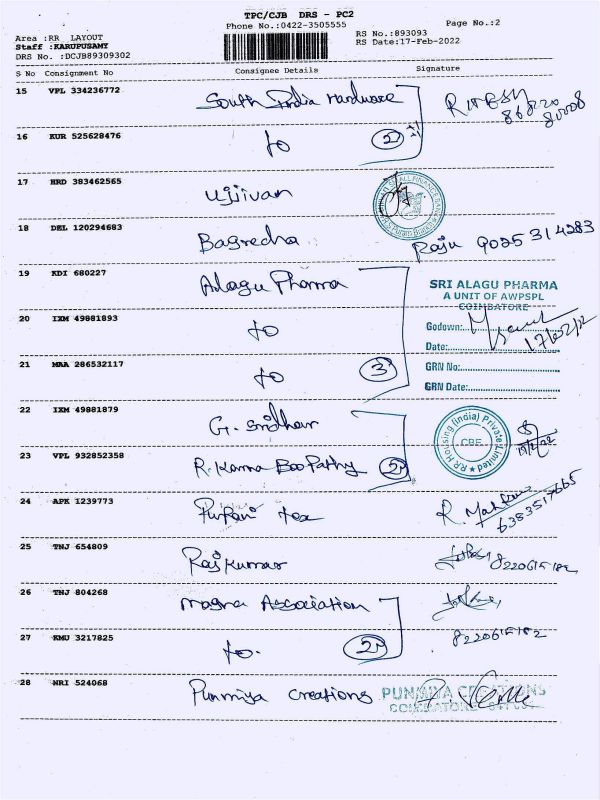 TPC/CJB DRS - PC2
Phone No.:0422-3505555
Page No.:2
Area :RR LAYOUT
RS No.:893093
Staff :KARUPUSAMY
RS Date:17-Feb-2022
DRS No. :DCJB89309302
S No Consignment No Consignee Details Signature
15 VPL 334236772 South India Hardware RITESH 86820 80008
16 KUR 525628476 to 2
17 HRD 383462565 Ujjivan
18 DEL 120294683 Bagrecha Raju 9025314283
19 KDI 680227 Alagu Pharma
SRI ALAGU PHARMA
A UNIT OF AWPSPL
COIMBATORE
20 IXM 49881893 to
Godown:
Date: 17/02/22
21 MAA 286532117 to 3
GRN No:
GRN Date:
22 IXM 49881879 G. Sridhar
RP Housing (India) Private Limited
CBE
23 VPL 932852358 R. Kanna Boopathy 2
24 APK 1239773 tex R. 6383517665
25 TNJ 654809 Rajkumar
26 TNJ 804268 Magna Association
27 KMU 3217825 to. 2
28 NRI 524068 Punmiya Creations
PUNMIYA CREATIONS
COIMBATORE